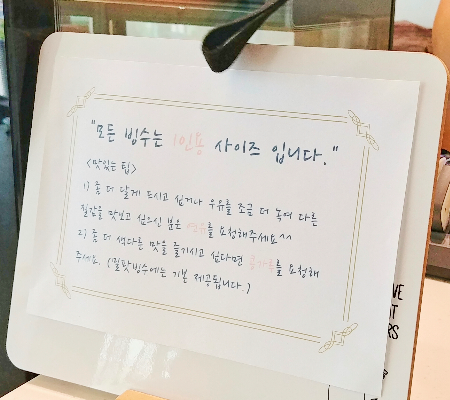 "모든 빙수는 1인용 사이즈 입니다."
<맛있는 팁>
1) 좀 더 달게 드시고 싶거나 우유를 조금 더 녹여 다른
질감을 맛보고 싶으신 분은 연유를 요청해주세요^^
2) 좀 더 색다른 맛을 즐기시고 싶다면 콩가루를 요청해
주세요. (밀팥빙수에는 기본 제공됩니다.)